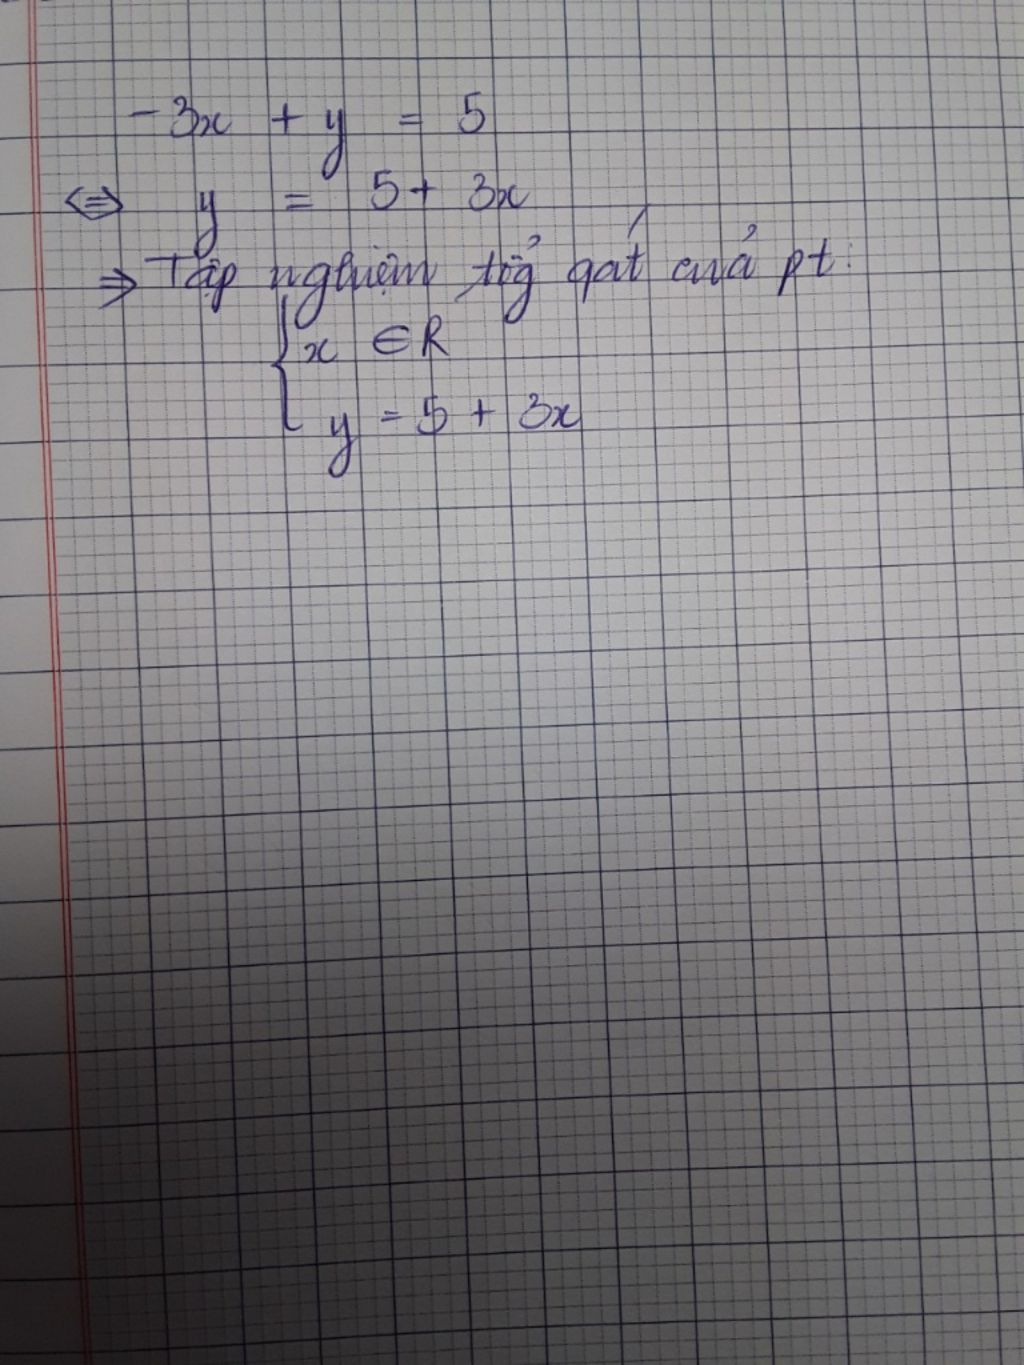 -3x + y = 5
⇔ y = 5 + 3x
⇒ Tập nghiệm tổg qát của pt:
{ x ∈ R
y = 5 + 3x